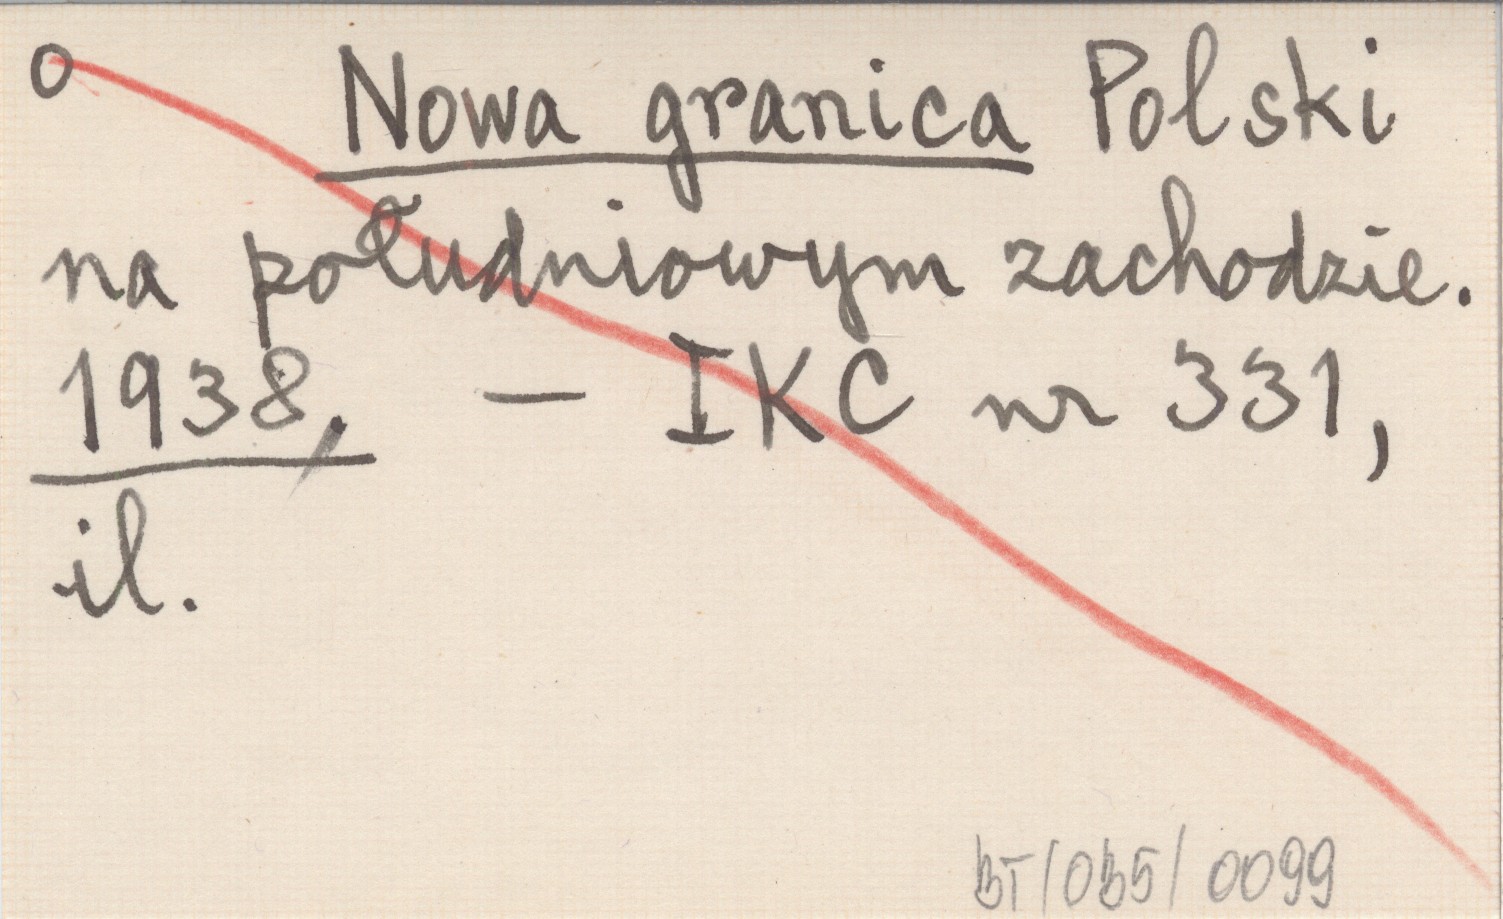 o Nowa granica Polski
na południowym zachodzie.
1938, — IKC nr 331,
il.
BT/OB5/0099